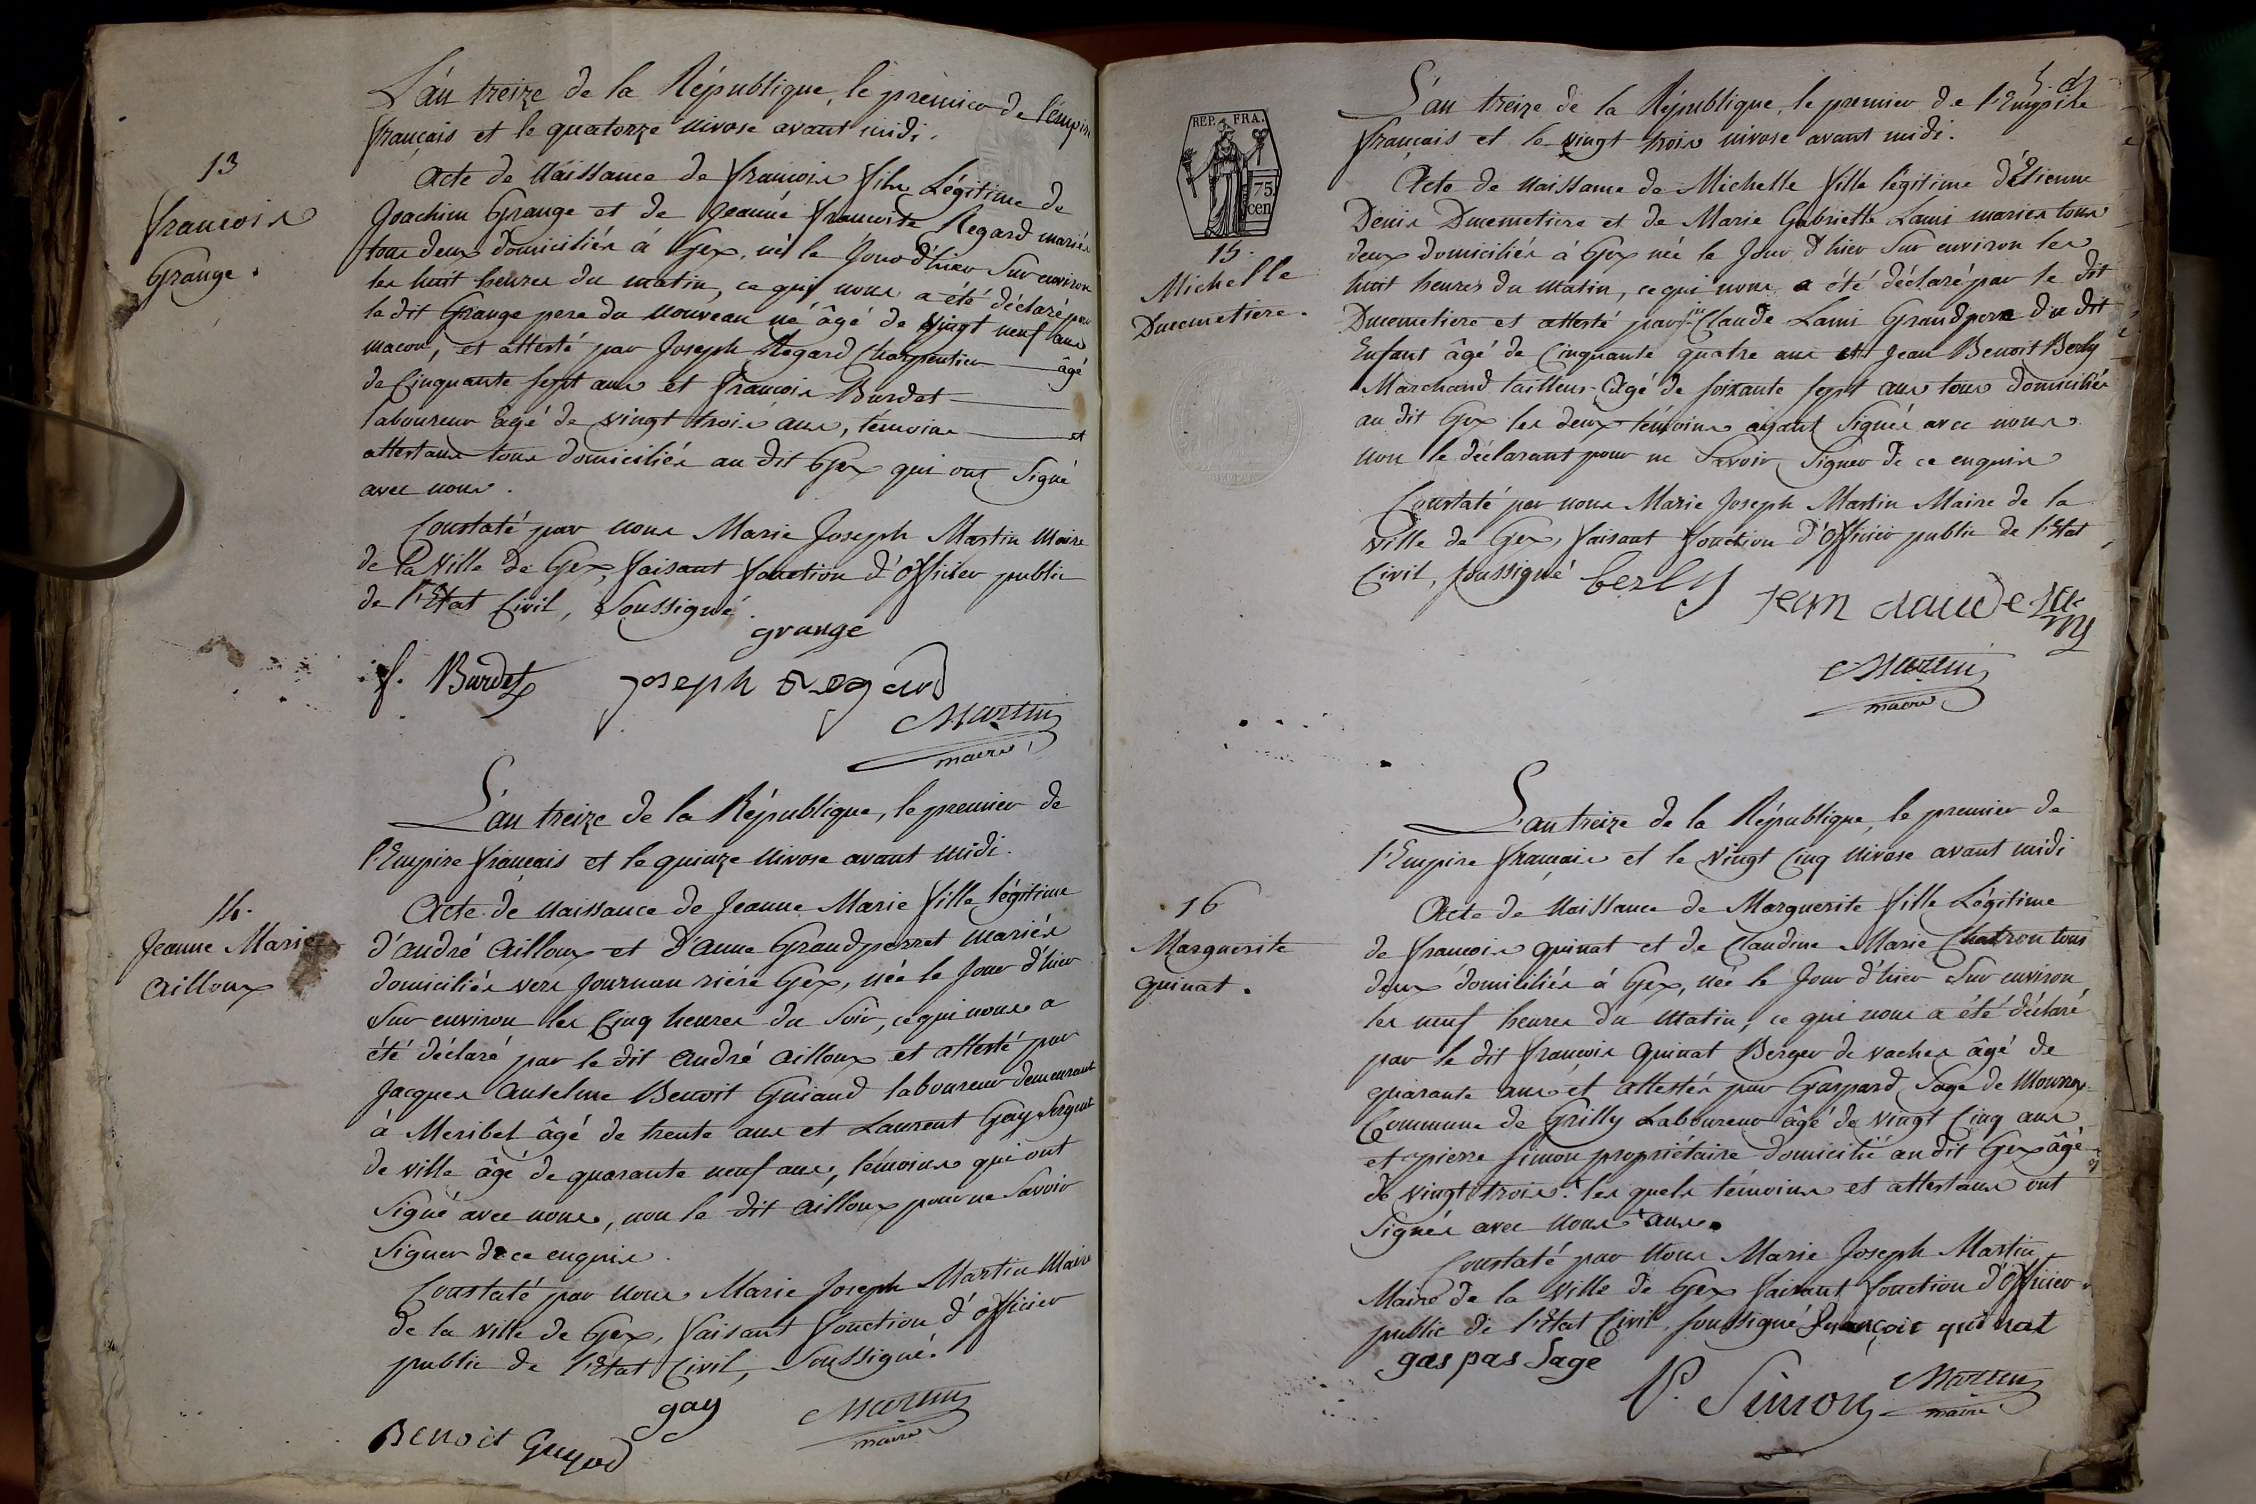 L'an treize de la République, le premier de l'empire
français et le quatorze nivose avant midi.
13
francois
Grange.
Acte de Naissance de francois fils Légitime de
Joachim Grange et de Jeanne francoise Regard mariés
tous deux domiciliés à Gex, né le Jour d'hier Sur environ
les huit heures du matin, ce qui nous a été déclaré par
le dit Grange pere du nouveau né âgé de vingt neuf ans
macon, et attesté par Joseph Regard Charpentier âgé
de Cinquante sept ans et francois Burdet
laboureur âgé de vingt trois ans, témoins et
attestans tous domiciliés au dit Gex qui ont Signé
avec nous.
Constaté par nous Marie Joseph Martin Maire
de la Ville de Gex, faisant fonction d'officier public
de l'Etat Civil, Soussigné.
grange
f. Burdet joseph regard
Martin
maire
L'an treize de la République, le premier de
l'Empire français et le quinze Nivose avant midi.
14.
Jeanne Marie
Ailloux
Acte de Naissance de Jeanne Marie fille légitime
d'andré Ailloux et d'anne Grandperret Mariés
domiciliés vers Journan riére Gex, née le Jour d'hier
Sur environ les Cinq heures du Soir, ce qui nous a
été déclaré par le dit André Ailloux et attesté par
Jacques Anselme Benoit Guiaud laboureur demeurant
à Meribel âgé de trente ans et Laurent Gay Sergent
de ville âgé de quarante neuf ans, témoins qui ont
Signé avec nous, non le dit Ailloux pour ne Savoir
Signer de ce enquis.
Constaté par Nous Marie Joseph Martin Maire
de la ville de Gex, faisant fonction d'officier
public de l'Etat Civil, Soussigné.
gay
Martin
maire
Benoit Guyod
L'an treize de la République, le premier de l'Empire
français et le vingt trois nivose avant midi.
REP. FRA.
75
cen
15.
Michelle
Ducimetiere.
Acte de Naissance de Michelle fille légitime d'Etienne
Denis Ducimetiere et de Marie Gabrielle Lami mariés tous
deux domiciliés à Gex née le Jour d'hier Sur environ les
huit heures du Matin, ce qui nous a été déclaré par le dit
Ducimetiere et attesté par jn Claude Lami Grandpere du dit
Enfant âgé de Cinquante quatre ans et Jean Benoit Berly
Marchand tailleur Agé de soixante sept ans tous domiciliés
au dit Gex les deux témoins ayant Signés avec nous
non le déclarant pour ne Savoir Signer de ce enquis
Constaté par nous Marie Joseph Martin Maire de la
Ville de Gex, faisant fonction d'Officier public de l'Etat
Civil, soussigné berly
jean claude lamy
Martin
maire
L'an treize de la République, le premier de
l'Empire francais et le Vingt Cinq Nivose avant midi
16
Marguerite
quinat.
Acte de Naissance de Marguerite fille Légitime
de francois quinat et de Claudine Marie Chatron tous
deux domiciliés à Gex, née le Jour d'hier Sur environ
les neuf heures du Matin, ce qui nous a été déclaré
par le dit francois quinat Berger de vaches âgé de
quarante ans et attestés par Gaspard Sage de Mourex
Commune de Grilly Laboureur âgé de vingt Cinq ans
et pierre simon propriétaire domicilié au dit Gex âgé
de vingt trois. les quels témoins et attestans ont
Signés avec Nous ans.
Constaté par Nous Marie Joseph Martin
Maire de la Ville de Gex faisant fonction d'officier
public de l'Etat Civil, soussigné françois quinat
gaspas Sage
P. Simon Martin
maire